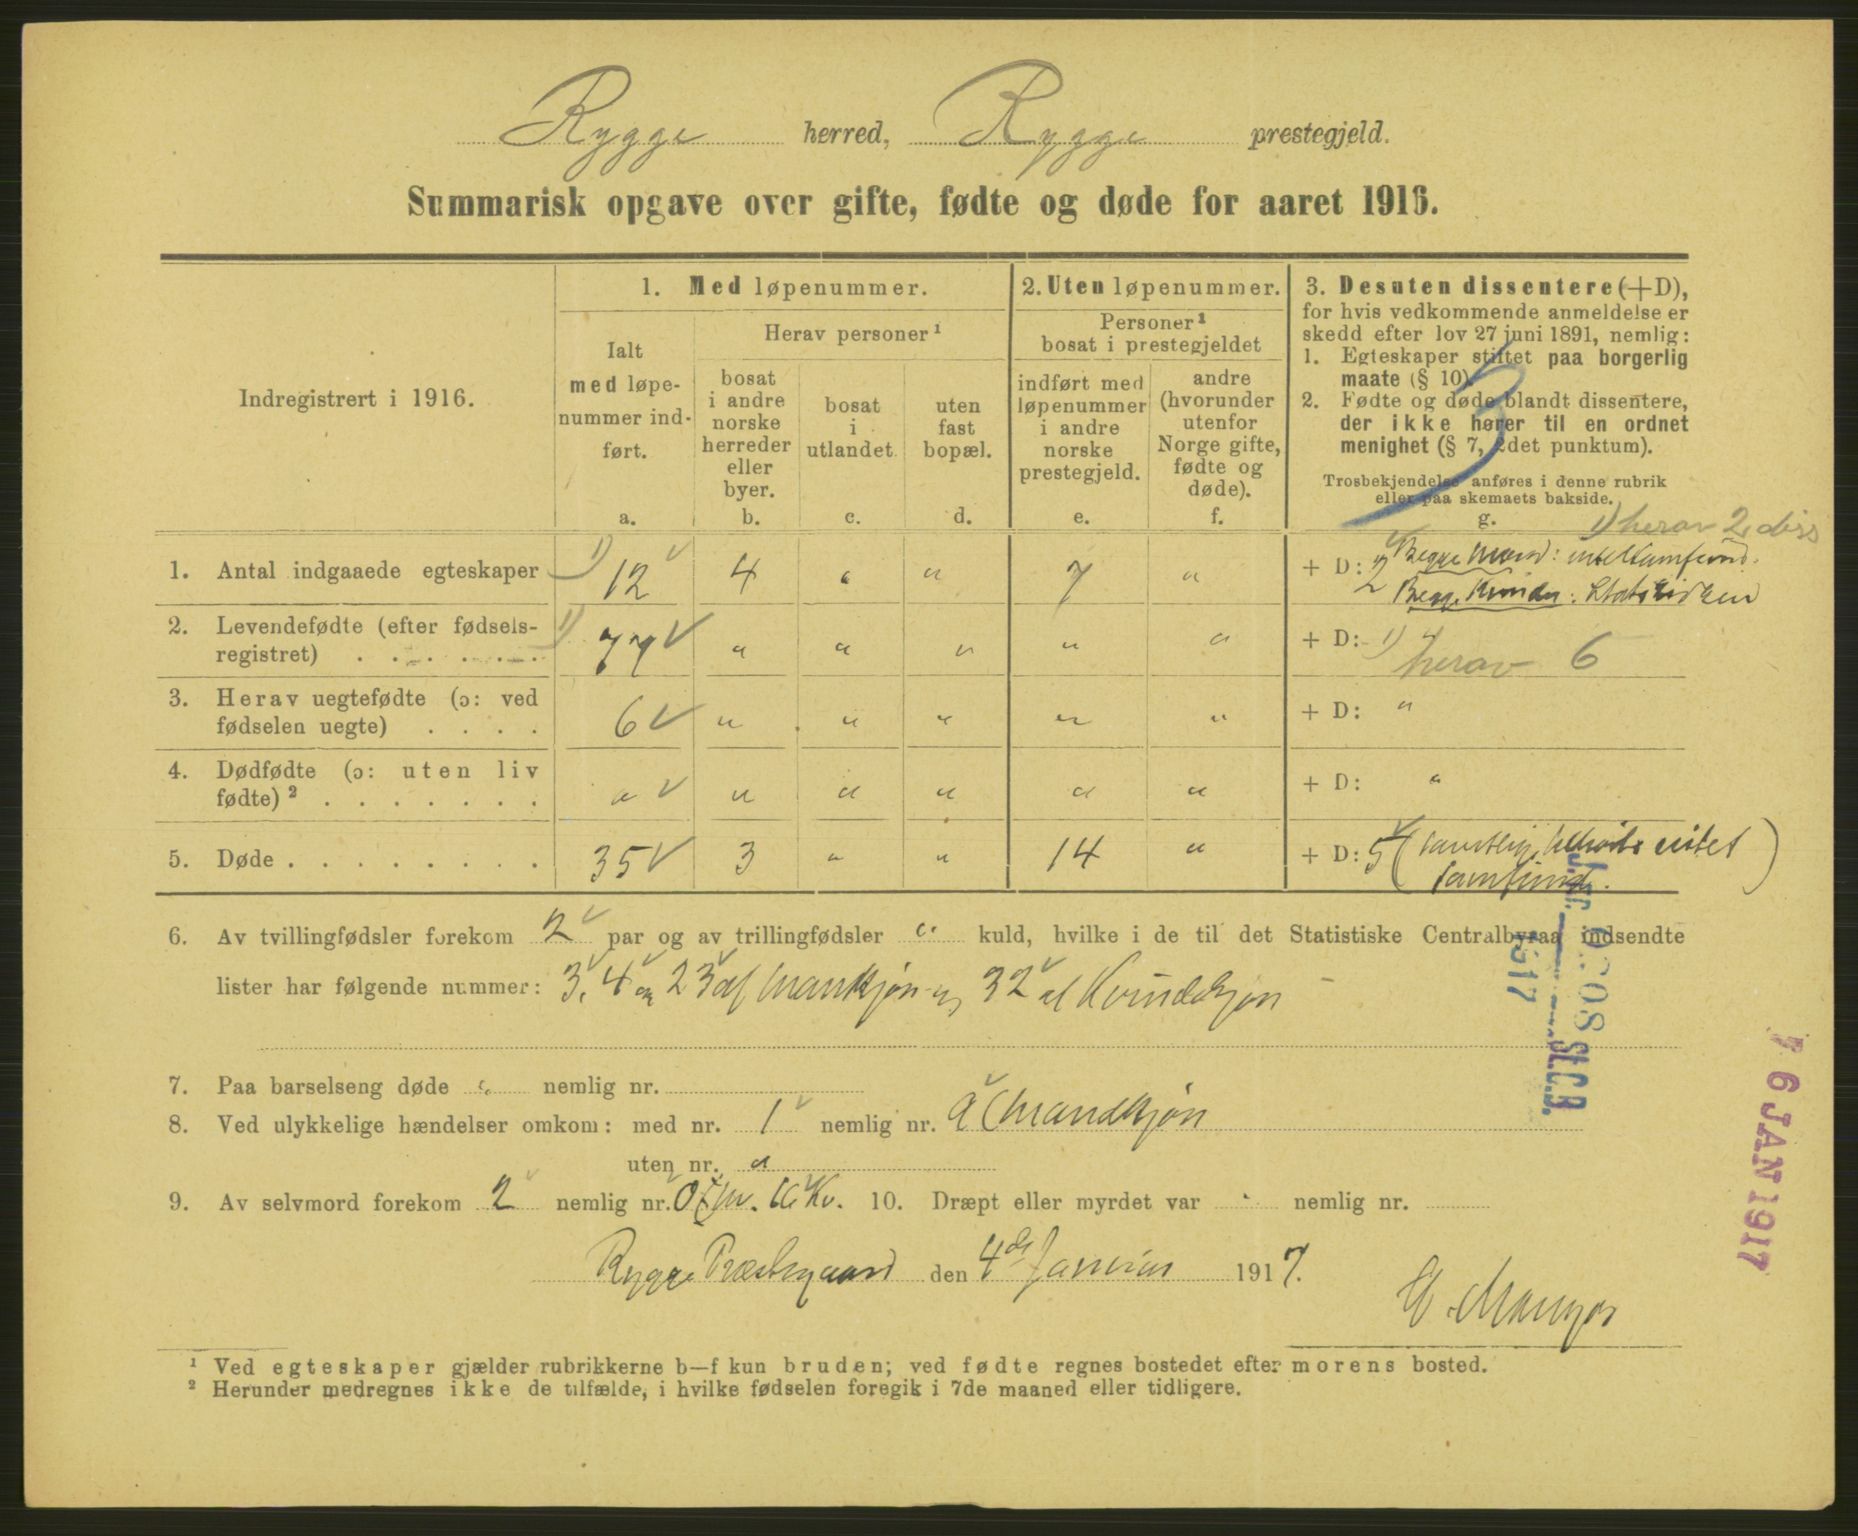 Rygge herred, Rygge prestegjeld.
Summarisk opgave over gifte, fødte og døde for aaret 1916.
Indregistrert i 1916.
1. Med løpenummer.
Ialt med løpenummer indført.
a.
Herav personer¹
bosat i andre norske herreder eller byer.
b.
bosat i utlandet.
c.
uten fast bopæl.
d.
2. Uten løpenummer.
Personer¹ bosat i prestegjeldet
indført med løpenummer i andre norske prestegjeld.
e.
andre (hvorunder utenfor Norge gifte, fødte og døde).
f.
3. Desuten dissentere (+D),
for hvis vedkommende anmeldelse er
skedd efter lov 27 juni 1891, nemlig:
1. Egteskaper stiftet paa borgerlig
maate (§ 10).
2. Fødte og døde blandt dissentere,
der ikke hører til en ordnet
menighet (§ 7, 2det punktum).
Trosbekjendelse anføres i denne rubrik
eller paa skemaets bakside.
g.
1) herav 2 diss
1. Antal indgaaede egteskaper 1) 12 4 " " 7 " + D: 2 Begge Mænd:
Begge Kvinder: Statskirken
2. Levendefødte (efter fødselsregistret) . . . . . . . 1) 77 " " " " " + D: 1) herav 6
3. Herav uegtefødte (ɔ: ved fødselen uegte) . . . . 6 " " " " " + D: "
4. Dødfødte (ɔ: uten liv fødte)² . . . . . . . " " " " " " + D: "
5. Døde . . . . . . . . 35 3 " " 14 " + D: 5 (
samfund. )
6. Av tvillingfødsler forekom 2 par og av trillingfødsler " kuld, hvilke i de til det Statistiske Centralbyraa indsendte
lister har følgende nummer: 3, 4 og 23 af Mankjøn og 32 af Kvindekjøn
7. Paa barselseng døde " nemlig nr.
8. Ved ulykkelige hændelser omkom: med nr. 1 nemlig nr. Mandkjøn
uten nr. "
9. Av selvmord forekom 2 nemlig nr. Kv. 10. Dræpt eller myrdet var " nemlig nr.
Rygge Præstegaard den 4de Januar 1917.
¹ Ved egteskaper gjælder rubrikkerne b—f kun bruden; ved fødte regnes bostedet efter morens bosted.
² Herunder medregnes ikke de tilfælde, i hvilke fødselen foregik i 7de maaned eller tidligere.
J.nr.
1917
St.C.B.
6 JAN 1917